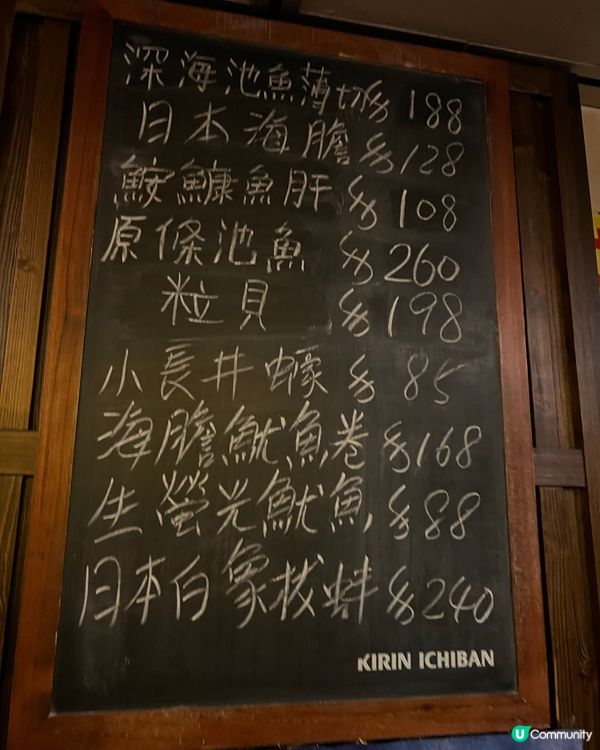 深海池魚薄切 $188
日本海膽 $128
鮟鱇魚肝 $108
原條池魚 $260
粒貝 $198
小長井蠔 $85
海膽魷魚卷 $168
生螢光魷魚 $88
日本白象拔蚌 $240
KIRIN ICHIBAN
U Community